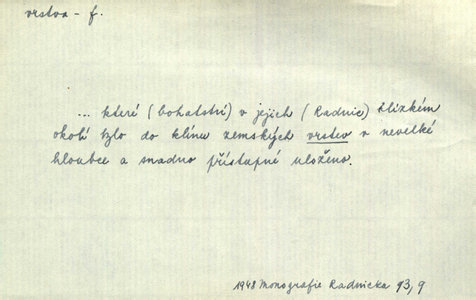 vrstva - f.
... které (bohatství) v jejich (Radnic) blízkém
okolí bylo do klínu zemských vrstev v nevelké
hloubce a snadno přístupné uloženo.
1948 Monografie Radnicka 93,9